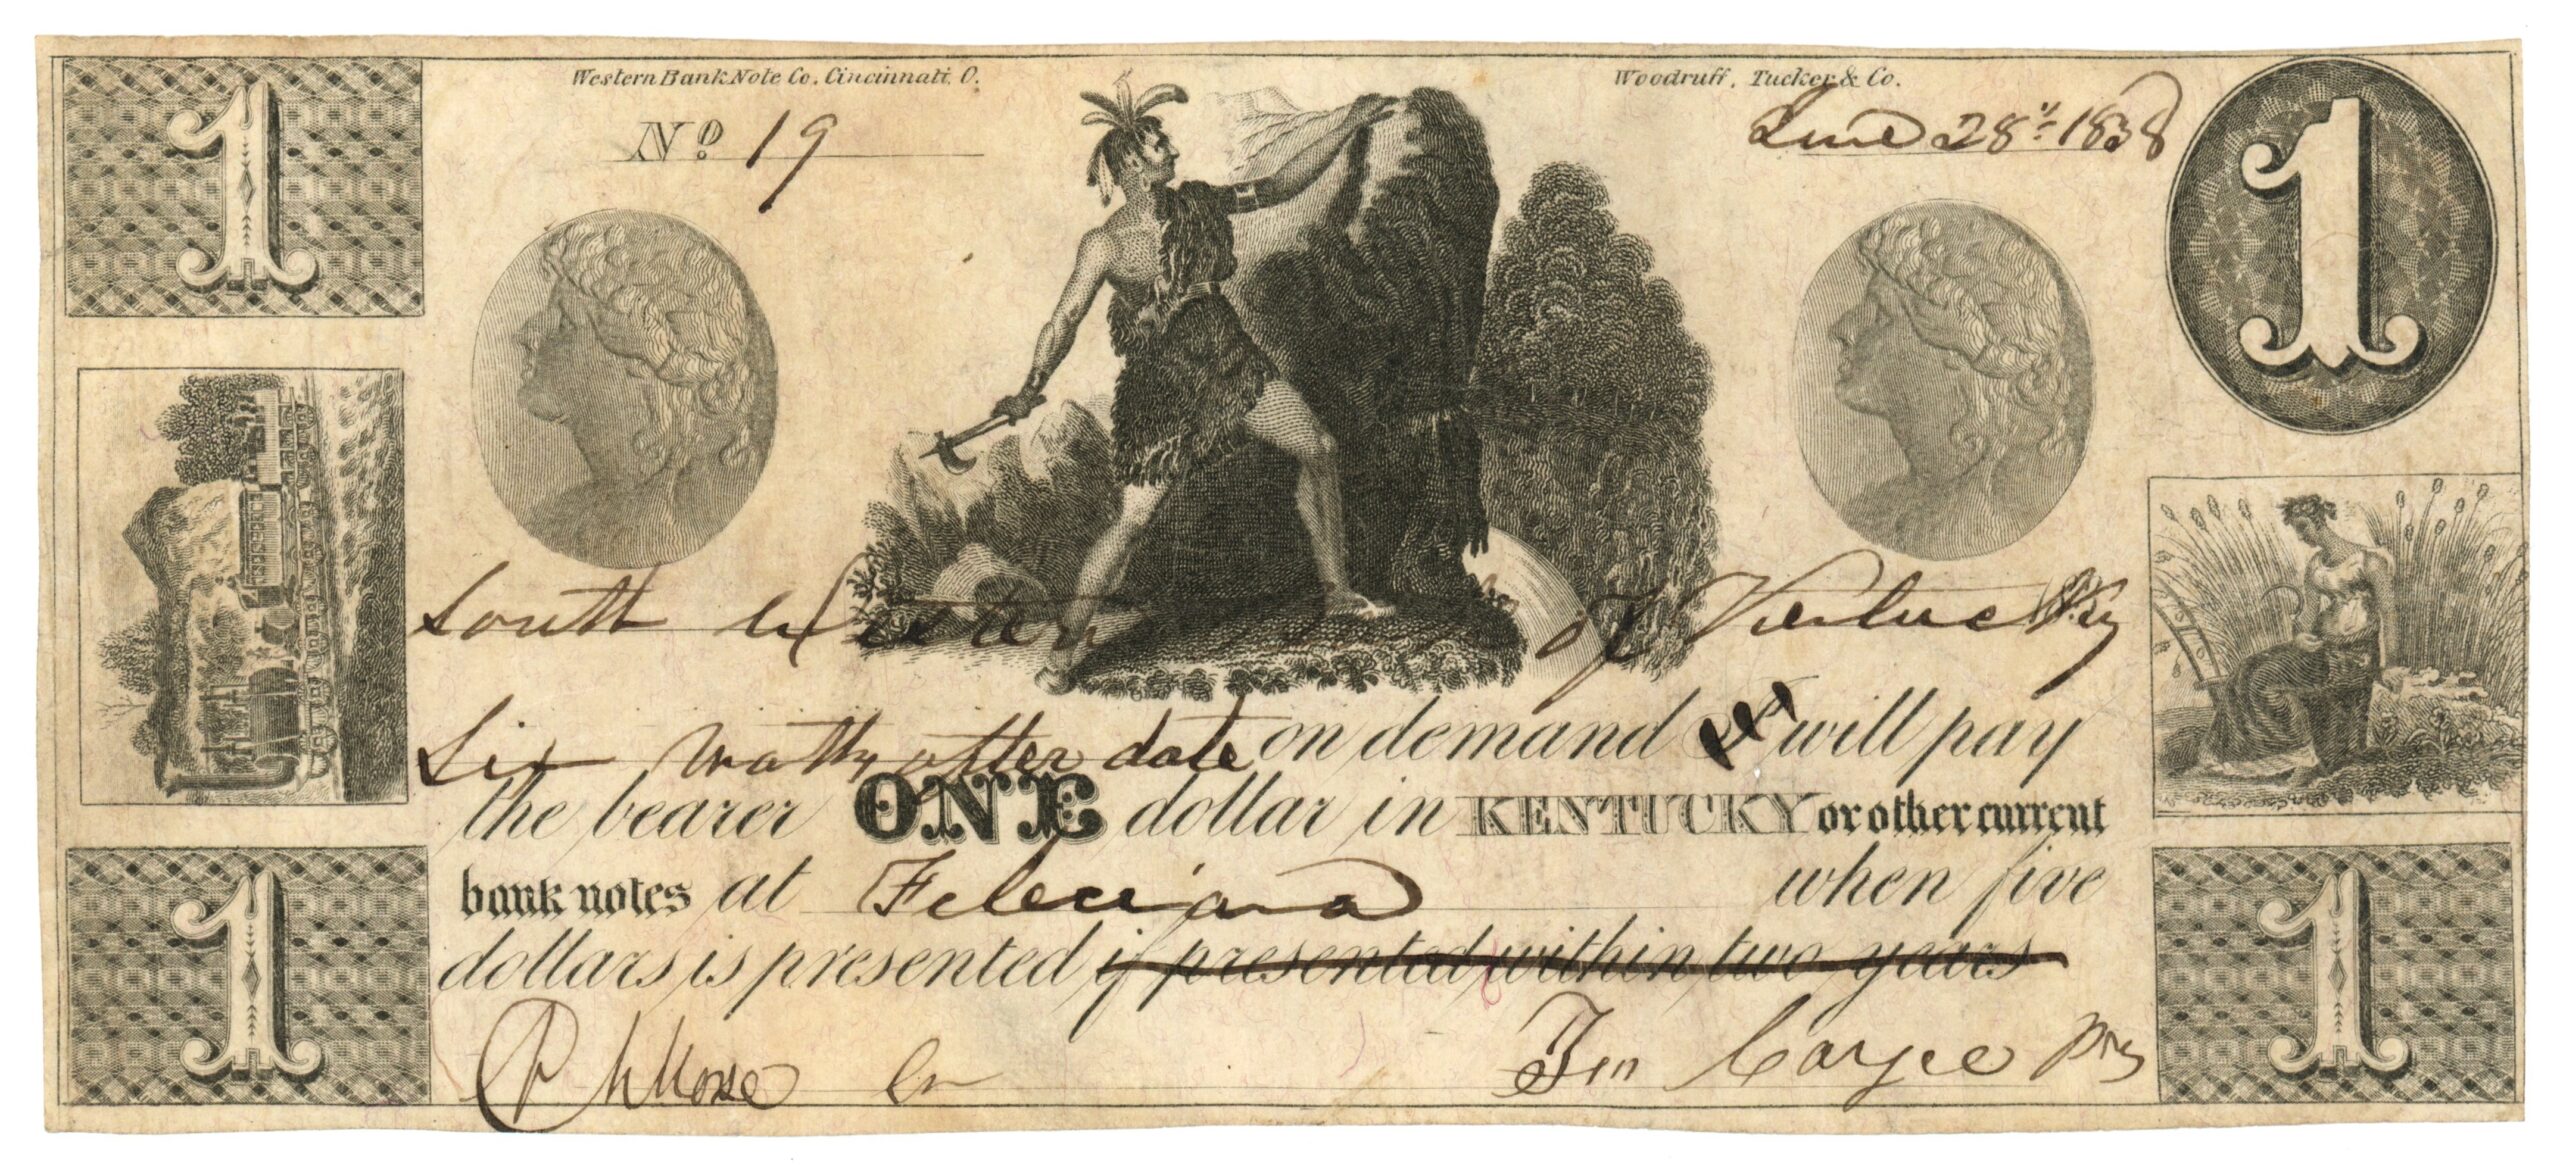 1
Western Bank Note Co. Cincinnati. O.
Woodruff, Tucker & Co.
No. 19
June 28th 1838
1
South Western of Kentucky
Six Months after date on demand will pay
the bearer ONE dollar in KENTUCKY or other current
bank notes at Feleciana when five
dollars is presented if presented within two years
1
Morse
Cayce Prs
1